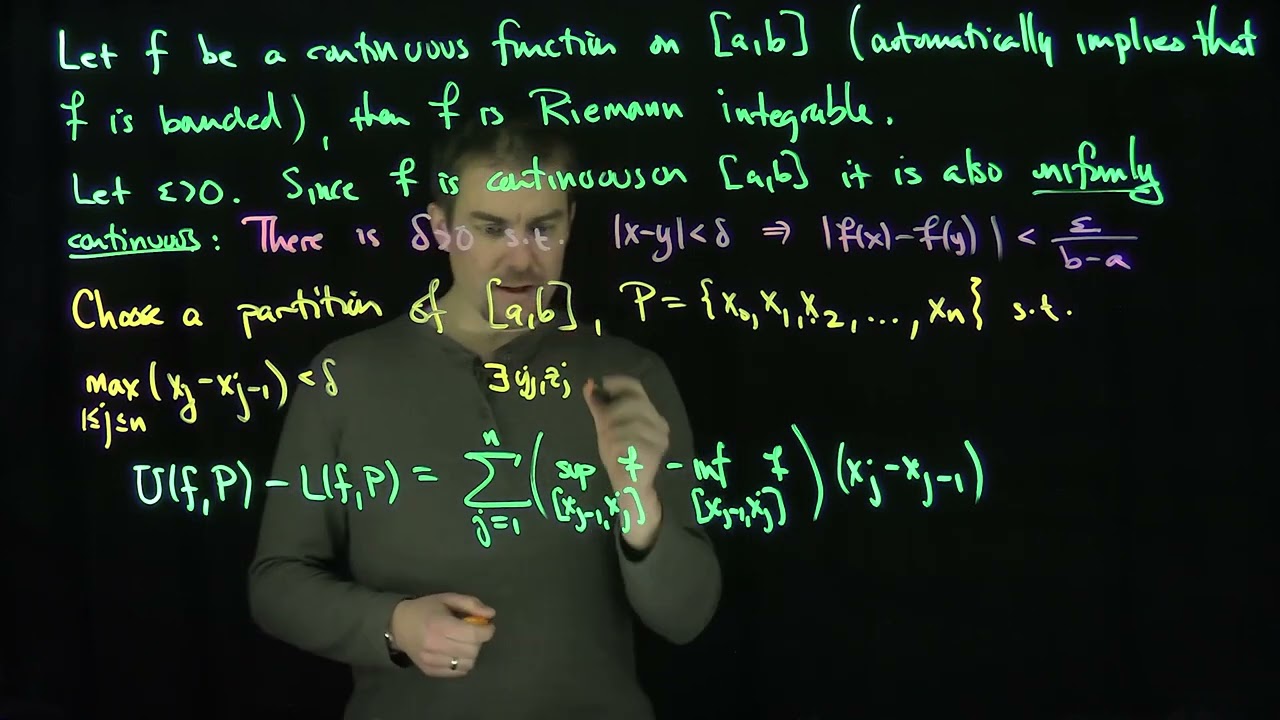 Let f be a continuous function on [a,b] (automatically implies that
f is bounded), then f is Riemann integrable.
Let ε>0. Since f is continuous on [a,b] it is also uniformly
continuous: There is δ>0 s.t. |x-y|<δ ⇒ |f(x)-f(y)| < ε/(b-a)
Choose a partition of [a,b], P = {x₀, x₁, x₂, ..., xₙ} s.t.
max (xⱼ - xⱼ₋₁) < δ ∃ yⱼ, zⱼ
1≤j≤n
U(f,P) - L(f,P) = ∑ⁿⱼ₌₁ ( sup f - inf f ) (xⱼ - xⱼ₋₁)
[xⱼ₋₁,xⱼ] [xⱼ₋₁,xⱼ]